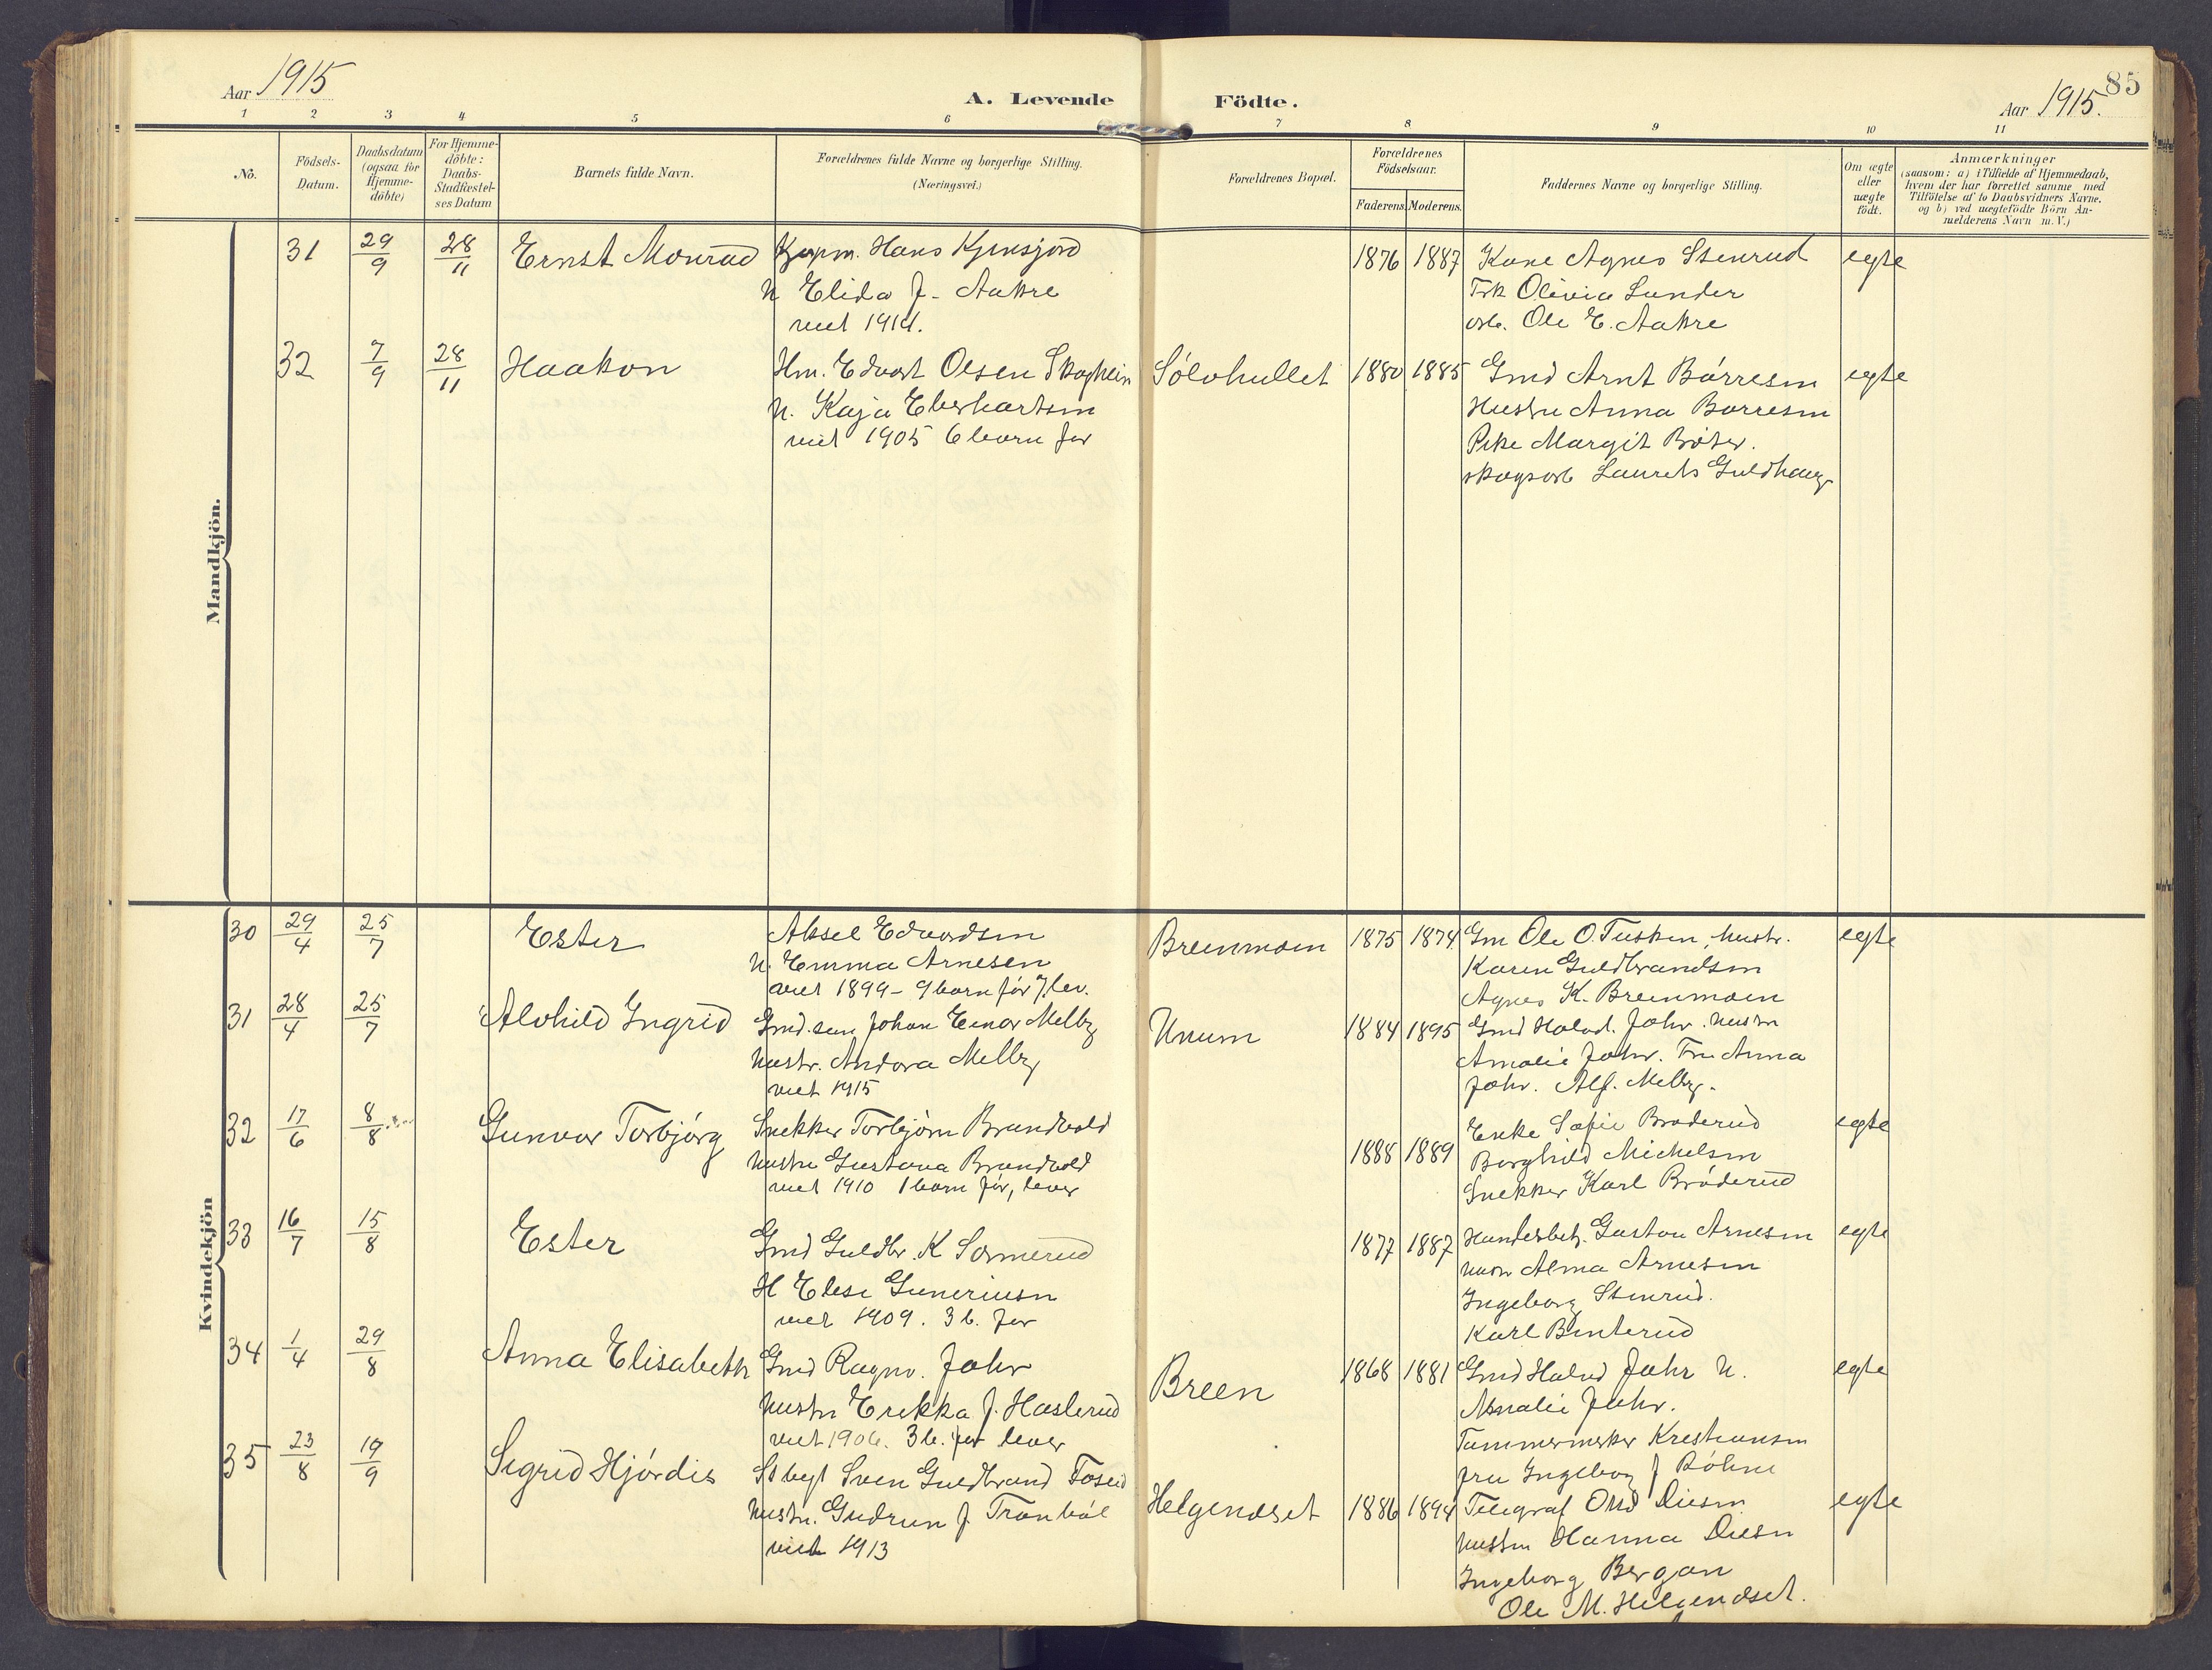 85
Aar 1915
A. Levende Födte.
Aar 1915.
1 2 3 4 5 6 7 8 9 10 11
No.
Födsels-
Datum.
Daabsdatum
(ogsaa for
Hjemme-
döbte)
For Hjemme-
döbte:
Daabs-
Stadfæstel-
ses Datum
Barnets fulde Navn.
Forældrenes fulde Navne og borgerlige Stilling.
(Næringsvei.)
Forældrenes Bopæl.
Forældrenes
Födselsaar.
Faderens. Moderens.
Faddernes Navne og borgerlige Stilling.
Om ægte
eller
uægte
födt.
Anmærkninger
(saasom: a) i Tilfælde af Hjemmedaab,
hvem der har forrettet samme, med
Tilföielse af to Daabsvidners Navne.
og b) ved uægtefödte Börn An-
melderens Navn m.V.)
Mandkjön.
31 29/9 28/11 Ernst Monrad Kjøpm. Hans 1876 1887 Kone Agnes Stenrud egte
H Elida J. Aakre Frk Olivia Sander
viet 1914. Ole E. Aakre
32 7/9 28/11 Haakon Hm. Edvart Olsen Skogheim Sölvhullet 1880 1885 Gmd Arnt Börresen egte
H. Kaja Eberhartsen Hustru Anna Börresen
viet 1905 6 barn før Pike Margit
Laurets Guldhaug
Kvindekjön
30 29/4 25/7 Ester Aksel Edvardsen Breenmoen 1875 1874 Gm Ole O. Tusken, hustr. egte
H. Emma Arnesen Karen Guldbrandsen
viet 1899 - 9 barn før 7 lev. Agnes K. Breenmoen
31 28/4 25/7 Alvhild Ingrid Gmd. søn Johan Einar Melby Unum 1884 1895 Gmd Halvd. Jahr. Hustru
Hustr. Andora Melby Amalie Jahr. Fru Anna
viet 1915 Jahr. Alf. Melby.
32 17/6 8/8 Gunvor Torbjörg Snekker Torbjörn Brandvold 1888 1889 Enke Sofie Braderud egte
Hustru Gustava Brandvold Borghild Michelsen
viet 1910 1 barn før, lever Snekker Karl Bröderud
33 16/7 15/8 Ester Gmd Guldbr. K Sormerud 1877 1887 Handelsbetj. Gustav Arnesen egte
H Elise Guneriusen Hustr Alma Arnesen
viet 1909. 3 b. før Ingeborg Stenrud.
Karl Binterud
34 1/4 29/8 Anna Elisabeth Gmd Ragnv. Jahr Breen 1868 1881 Gmd Halvd Jahr H. egte
Hustru Erikka J. Haslerud Amalie Jahr.
viet 1906. 3 b. før lever Tømmermerker Kristiansen
fru Ingeborg J Böhne
35 23/8 19/9 Sigrid Hjördis Sven Guldbrand Foseid Helgeneset 1886 1894 Telegraf Diesen egte
Hustru. Gudrun J. Tranböl Hustru Hanna Diesen
viet 1913 Ingeborg Bergan
Ole M. Helgendset.